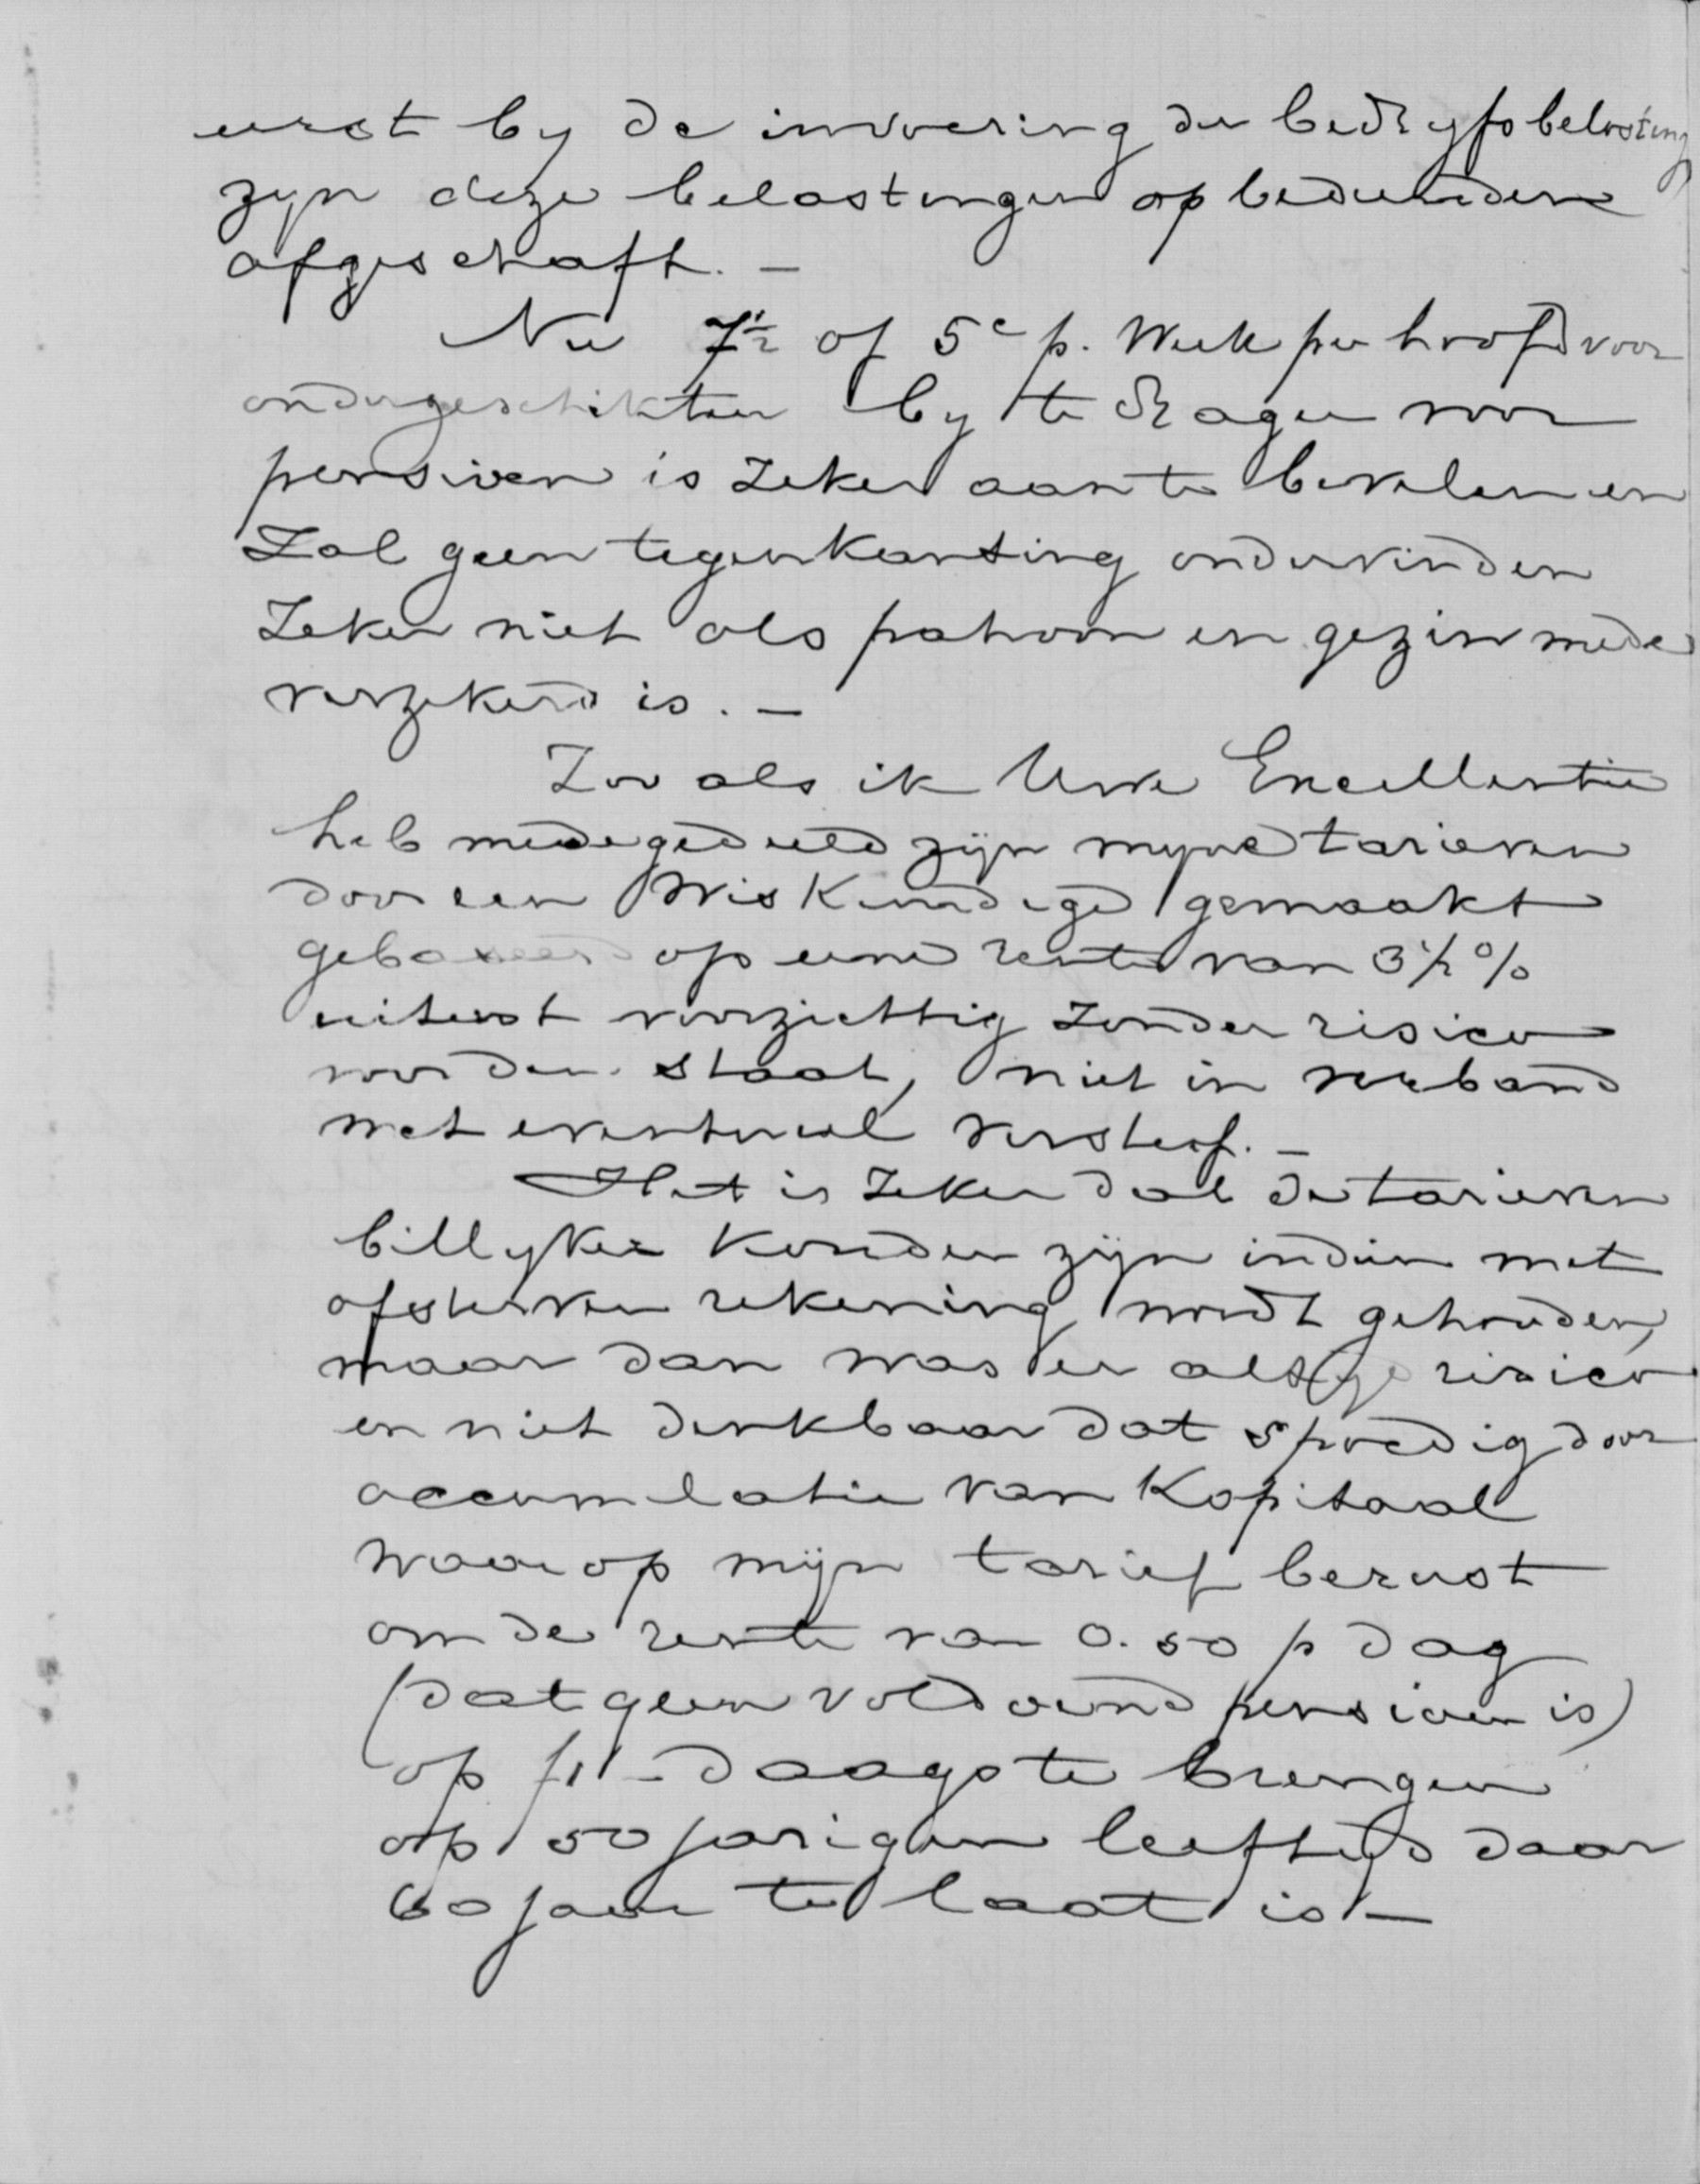 eerst by de invoering der bedryfsbelasting
zyn deze belastingen op bedienden
afgeschaft. —
Nu 7½ of 5c p. Week per hoofd voor
ondergeschikten by te dragen voor
pensioen is zeker aan te bevelen en
Zal geen tegenkanting ondervinden
Zeker niet als patroon en gezin mede
verzekerd is. —
Zoo als ik Uwe Excellentie
heb medegedeeld zijn myne tarieven
door een Wiskundige gemaakt
gebaseerd op eene rente van 3½%
uiterst voorzichtig zonder risico
voor den Staat, niet in verband
met eventueel versterf. —
Het is Zeker dat de tarieven
billyker konden zijn indien met
afsterven rekening wordt gehouden,
maar dan was er risico
en niet denkbaar dat spoedig door
accumulatie van Kapitaal
waarop mijn tarief berust
om de rente van 0.50 p dag
(dat geen voldoend pensioen is)
op f1 - daags te brengen
op 50 jarigen leeftijd daar
60 jaar te laat is —